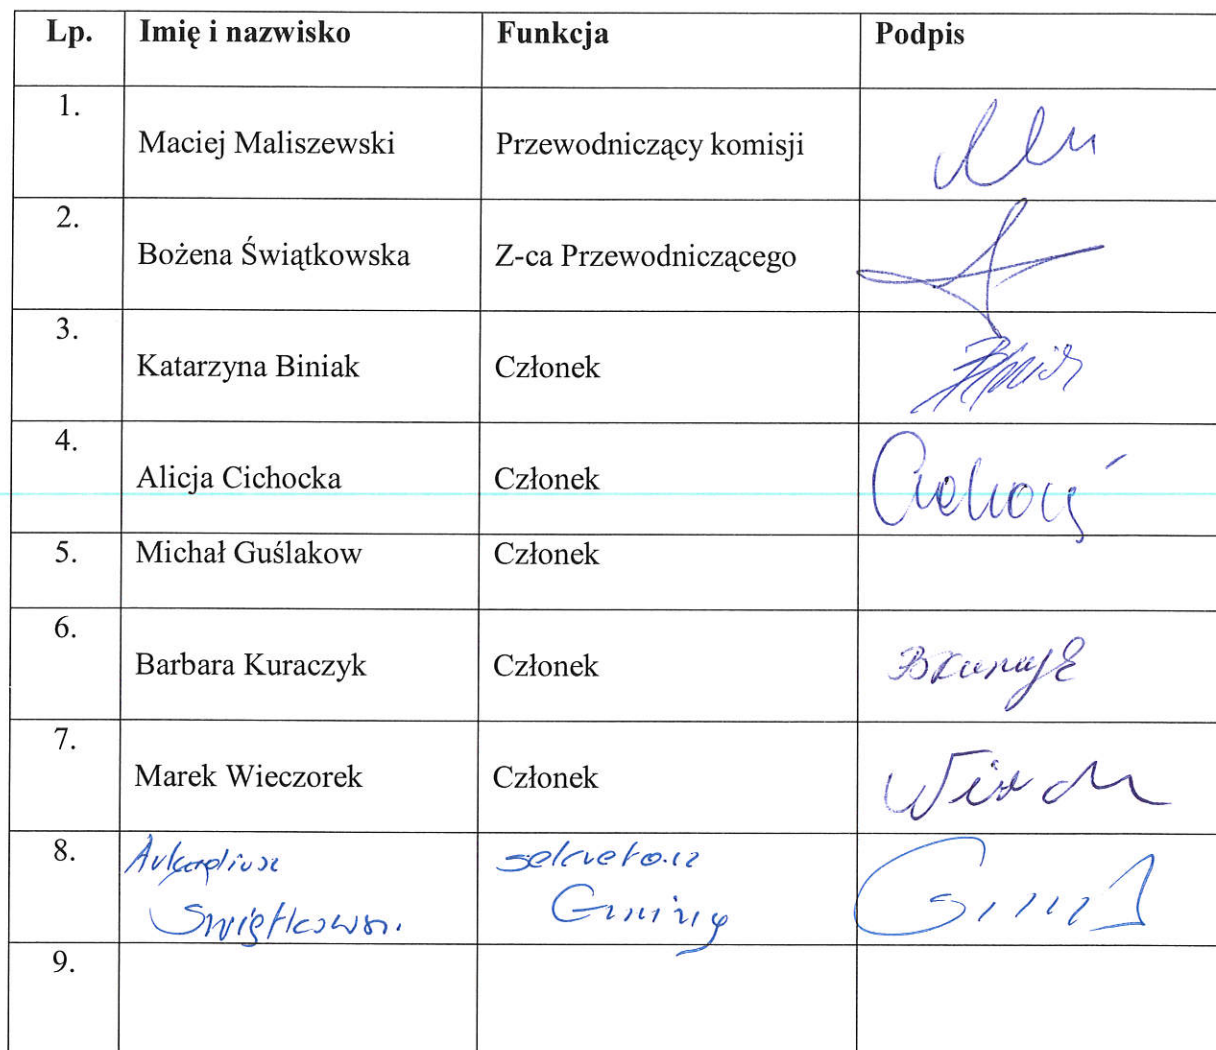 Lp. Imię i nazwisko Funkcja Podpis
1. Maciej Maliszewski Przewodniczący komisji
2. Bożena Świątkowska Z-ca Przewodniczącego
3. Katarzyna Biniak Członek
4. Alicja Cichocka Członek
5. Michał Guślakow Członek
6. Barbara Kuraczyk Członek
7. Marek Wieczorek Członek
8. Arkadiusz sekretarz
Gminy
9.